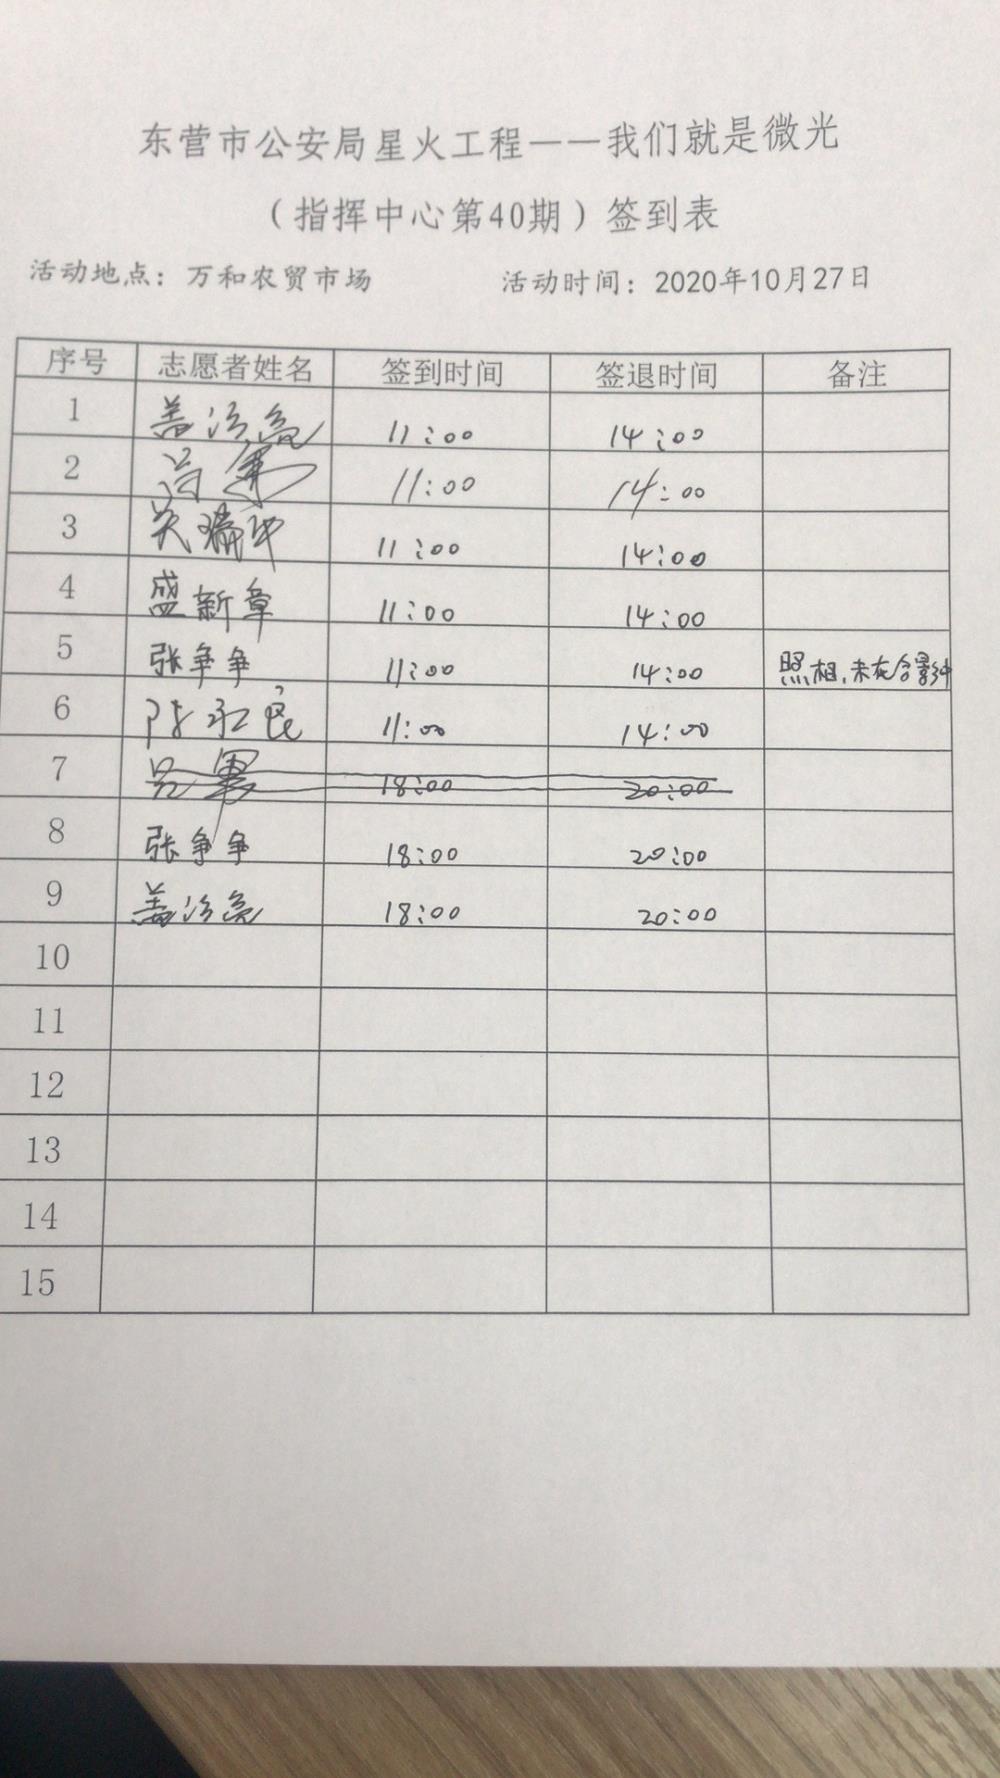 东营市公安局星火工程——我们就是微光
（指挥中心第40期）签到表
活动地点：万和农贸市场 活动时间：2020年10月27日
序号 志愿者姓名 签到时间 签退时间 备注
1 盖 11:00 14:00
2 11:00 14:00
3 11:00 14:00
4 盛新章 11:00 14:00
5 张争争 11:00 14:00 照相,未在合影中
6 陈永良 11:00 14:00
7 吕军 18:00 20:00
8 张争争 18:00 20:00
9 盖 18:00 20:00
10
11
12
13
14
15